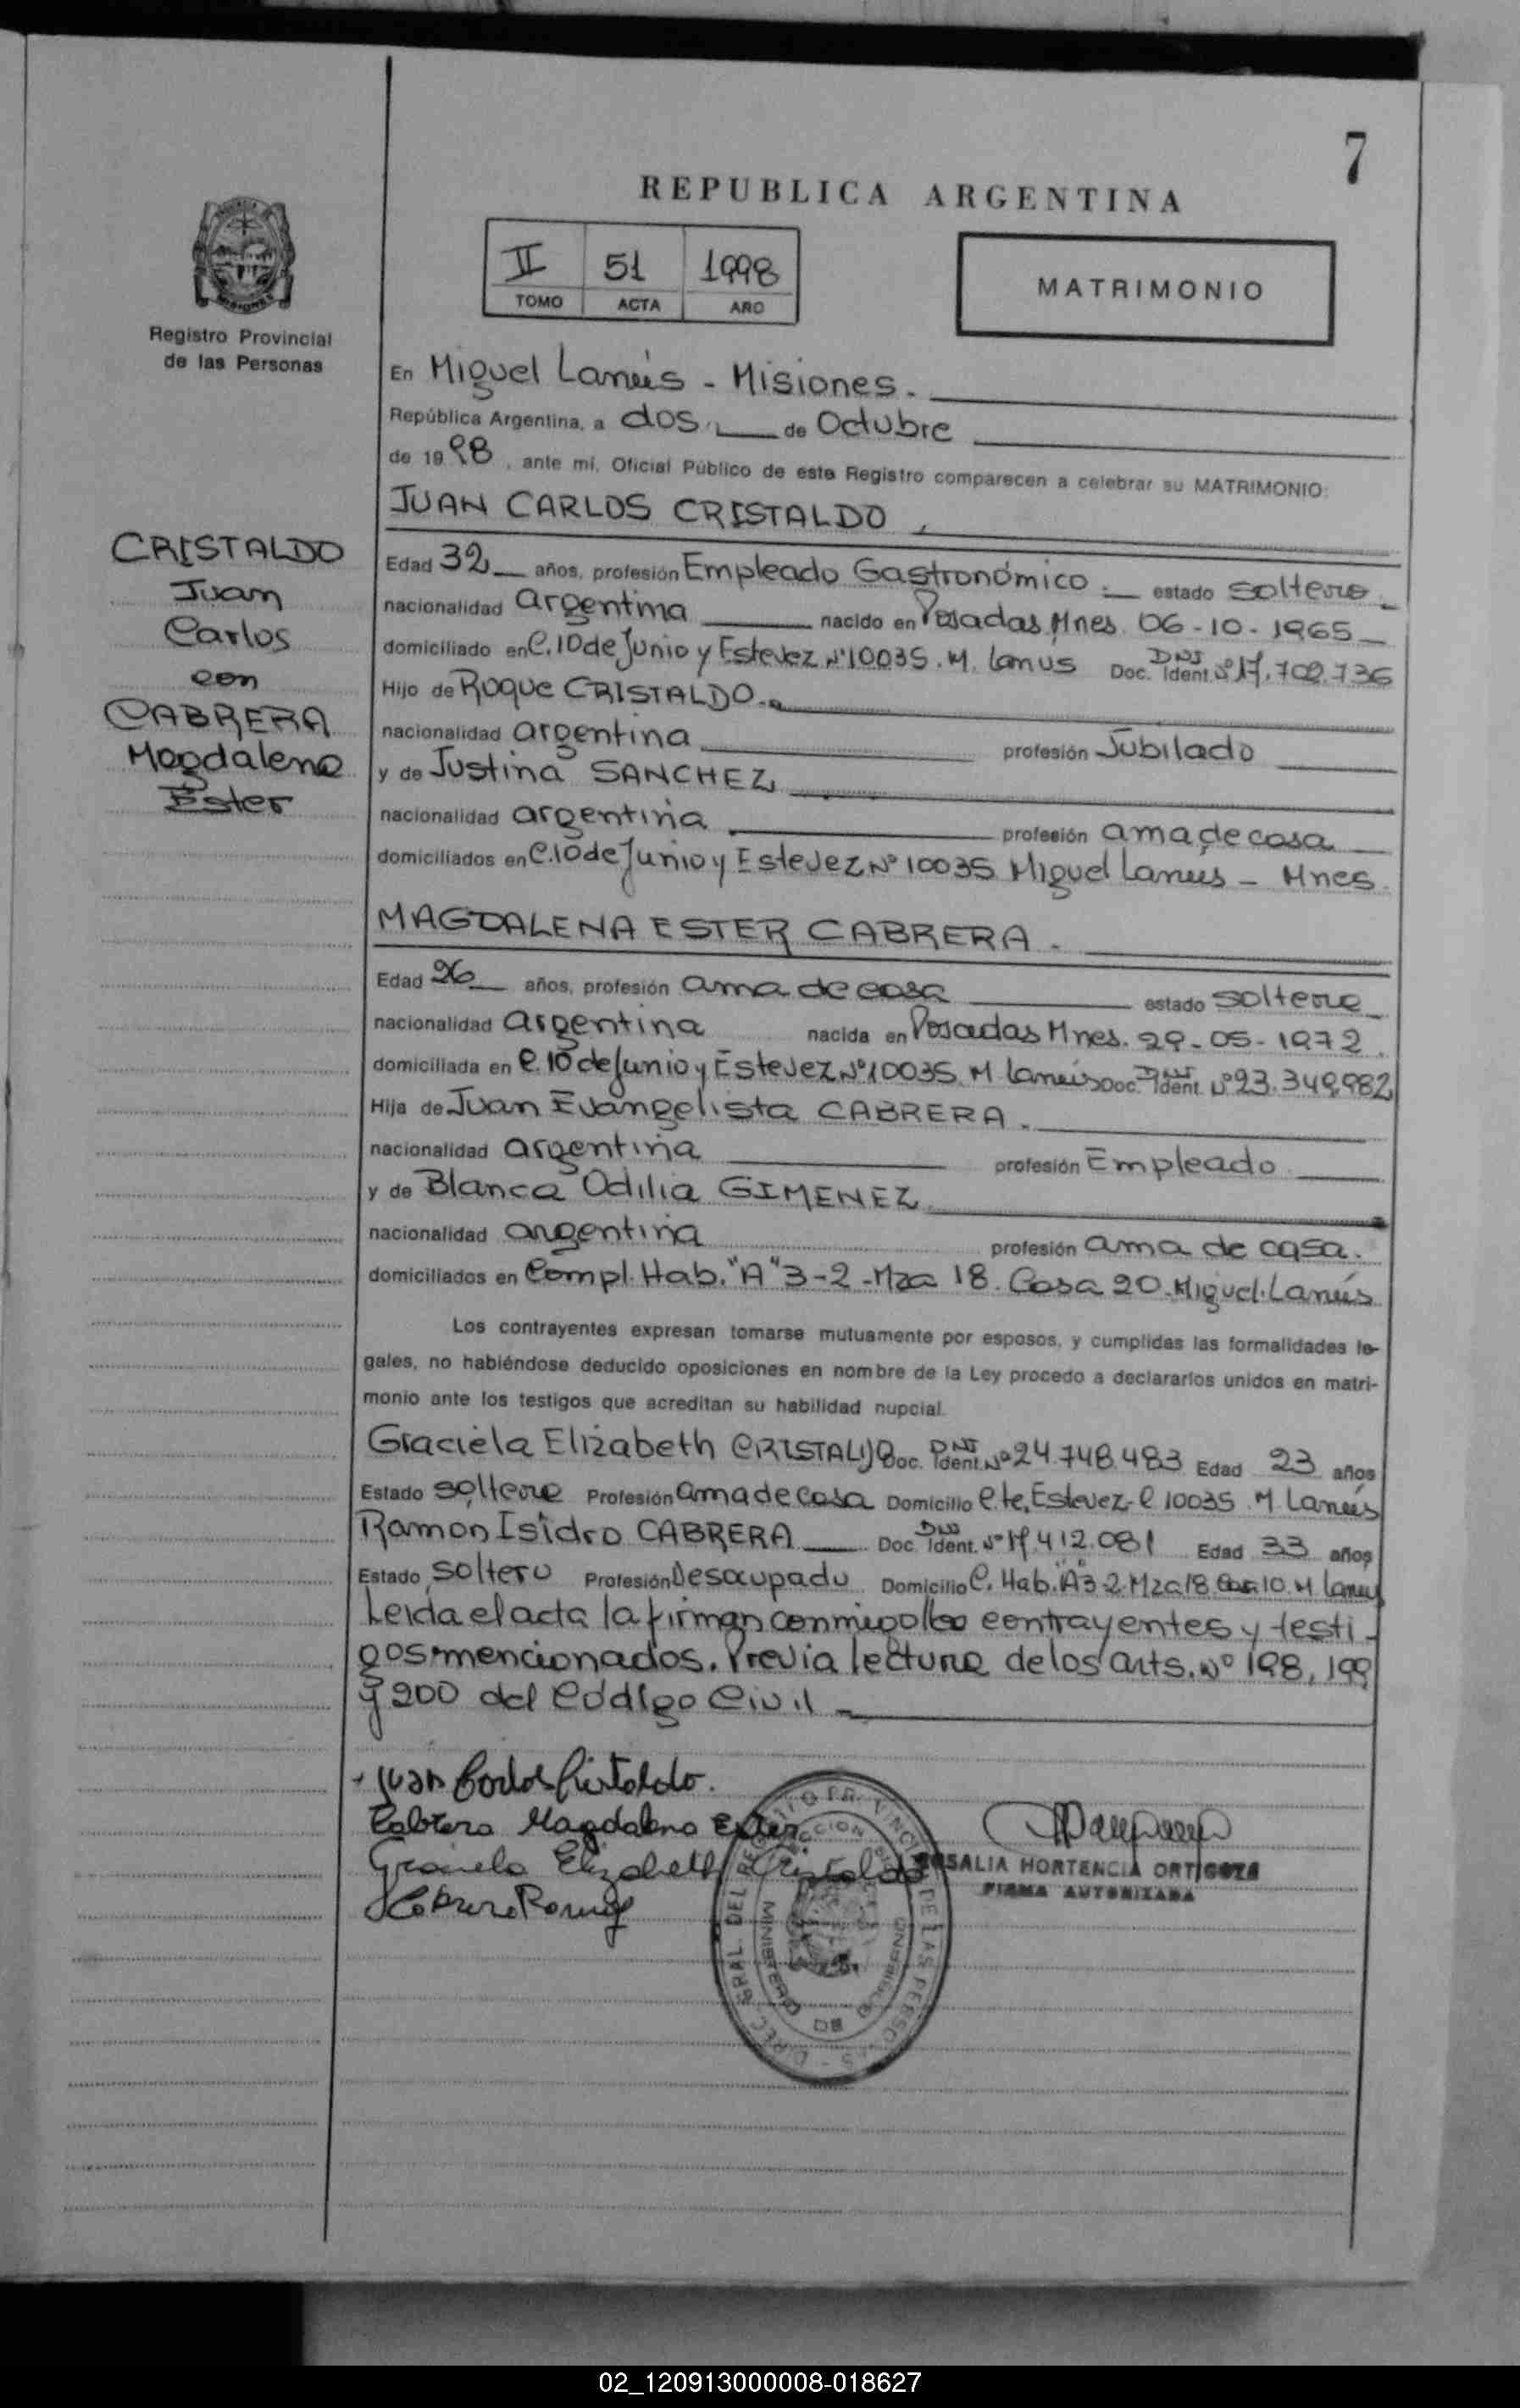 7
REPUBLICA ARGENTINA
II 51 1998
TOMO ACTA AÑO
MATRIMONIO
Registro Provincial
de las Personas
En Miguel Lanús - Misiones.
República Argentina, a dos de Octubre
de 1998, ante mí, Oficial Público de este Registro comparecen a celebrar su MATRIMONIO:
JUAN CARLOS CRISTALDO
CRISTALDO
Juan
Carlos
con
CABRERA
Magdalena
Ester
Edad 32 años, profesión Empleado Gastronómico. estado soltero
nacionalidad argentina nacido en Posadas Mnes. 06-10-1965
domiciliado en C. 10 de Junio y Estevez Nº 10035. M. Lanus Doc. Ident. DNI Nº 17.702.736
Hijo de Roque CRISTALDO.
nacionalidad argentina profesión Jubilado
y de Justina SANCHEZ
nacionalidad argentina profesión ama de casa
domiciliados en C. 10 de Junio y Estevez Nº 10035 Miguel Lanús - Mnes.
MAGDALENA ESTER CABRERA.
Edad 26 años, profesión ama de casa estado soltera
nacionalidad argentina nacida en Posadas Mnes. 29-05-1972.
domiciliada en C. 10 de Junio y Estevez Nº 10035 M Lanús Doc. Ident. DNI Nº 23.349.982
Hija de Juan Evangelista CABRERA.
nacionalidad argentina profesión Empleado
y de Blanca Odilia GIMENEZ
nacionalidad argentina profesión ama de casa.
domiciliados en Compl. Hab. "A" 3-2-Mza 18. Casa 20. Miguel Lanús
Los contrayentes expresan tomarse mutuamente por esposos, y cumplidas las formalidades le-
gales, no habiéndose deducido oposiciones en nombre de la Ley procedo a declararlos unidos en matri-
monio ante los testigos que acreditan su habilidad nupcial.
Graciela Elizabeth CRISTALDO Doc. Ident. DNI Nº 24.748.483 Edad 23 años
Estado soltera Profesión ama de casa Domicilio Estevez 10035. M Lanús
Ramon Isidro CABRERA Doc. Ident. DNI Nº 17.412.081 Edad 33 años
Estado soltero Profesión Desocupado Domicilio C. Hab. "A" 3-2. Mza 18. Casa 10. M. Lanus
Leida el acta la firman conmigo los contrayentes y testi-
gos mencionados. Previa lectura de los arts. Nº 198, 199
y 200 del Código Civil
Juan Carlos Cristaldo.
Cabrera Magdalena Ester
Graciela Elizabeth Cristaldo
Cabrera Ramon
ROSALIA HORTENCIA ORTIGOZA
FIRMA AUTORIZADA
DIREC. GRAL. DEL REGISTRO PROVINCIAL DE LAS PERSONAS
MINISTERIO DE GOBIERNO
02_120913000008-018627